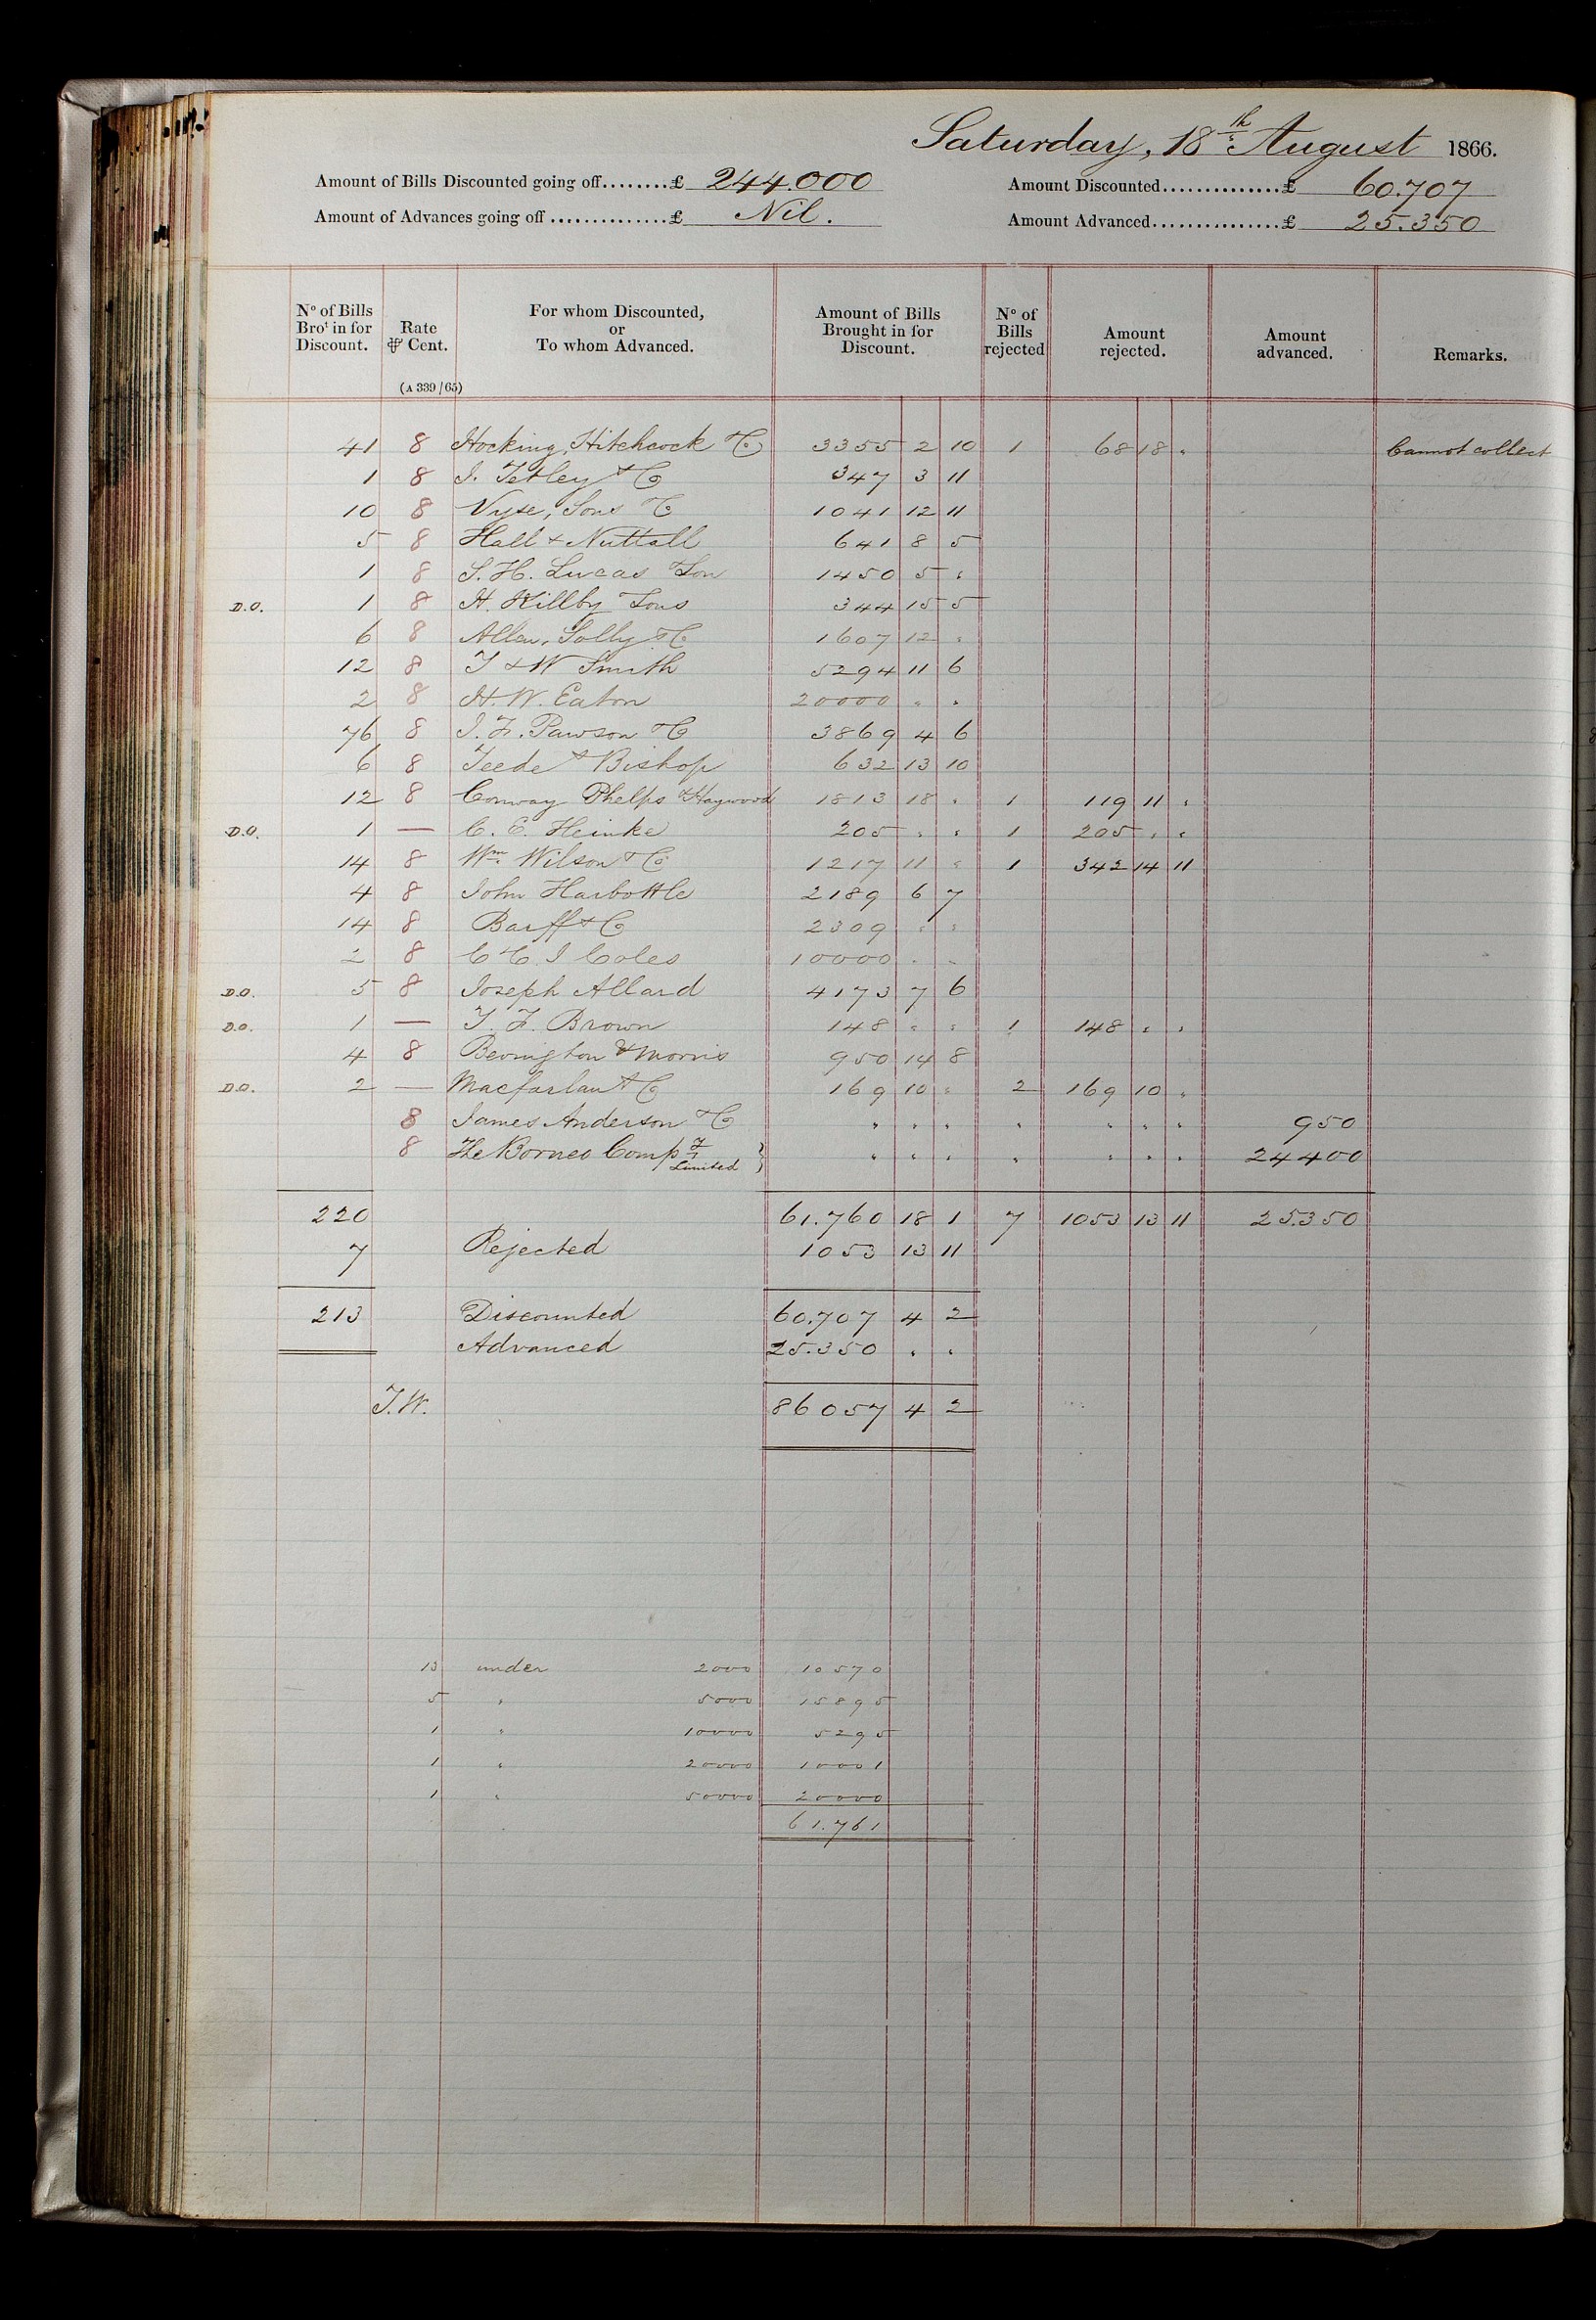 Saturday, 18th August 1866.
Amount of Bills Discounted going off........£ 244.000 Amount Discounted...............£ 60.707
Amount of Advances going off ...............£ Nil. Amount Advanced................£ 25.350
No of Bills Brot in for Discount. Rate ⅌ Cent. For whom Discounted, or To whom Advanced. Amount of Bills Brought in for Discount. No of Bills rejected Amount rejected. Amount advanced. Remarks.
(A 339/65)
41 8 Hocking, Hitchcock & Co 3355 2 10 1 68 18 " Cannot collect
1 8 I. Tetley & Co 347 3 11
10 8 Vyse, Sons & Co 1041 12 11
5 8 Hall & Nuttall 641 8 5
1 8 S. H. Lucas & Son 1450 5 "
D.O. 1 8 H. Killby & Sons 344 15 5
6 8 Allen, Solly & Co 1607 12 "
12 8 T & W Smith 5294 11 6
2 8 H. W. Eaton 20000 " "
76 8 J. F. Pawson & Co 3869 4 6
6 8 Teede & Bishop 632 13 10
12 8 Conway Phelps & Haywood 1813 18 " 1 119 11 "
D.O. 1 — C. E. Heinke 205 " " 1 205 " "
14 8 Wm. Wilson & Co 1217 11 " 1 342 14 11
4 8 John Harbottle 2189 6 7
14 8 Barff & Co 2309 " "
2 8 C & J Coles 10000 " "
D.O. 5 8 Joseph Allard 4173 7 6
D.O. 1 — T. F. Brown 148 " " 1 148 " "
4 8 Bevington & Morris 950 14 8
D.O. 2 — Macfarlan & Co 169 10 " 2 169 10 "
8 James Anderson & Co " " " " " " " 950
8 The Borneo Compy Limited } " " " " " " " 24400
220 61.760 18 1 7 1053 13 11 25.350
7 Rejected 1053 13 11
213 Discounted 60.707 4 2
Advanced 25.350 " "
J.W. 86057 4 2
13 under 2000 10570
5 " 5000 15895
1 " 10000 5295
1 " 20000 10001
1 " 50000 20000
61.761